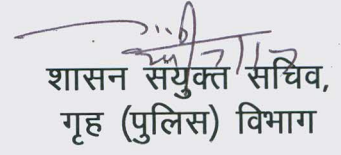 शासन संयुक्त सचिव,
गृह (पुलिस) विभाग